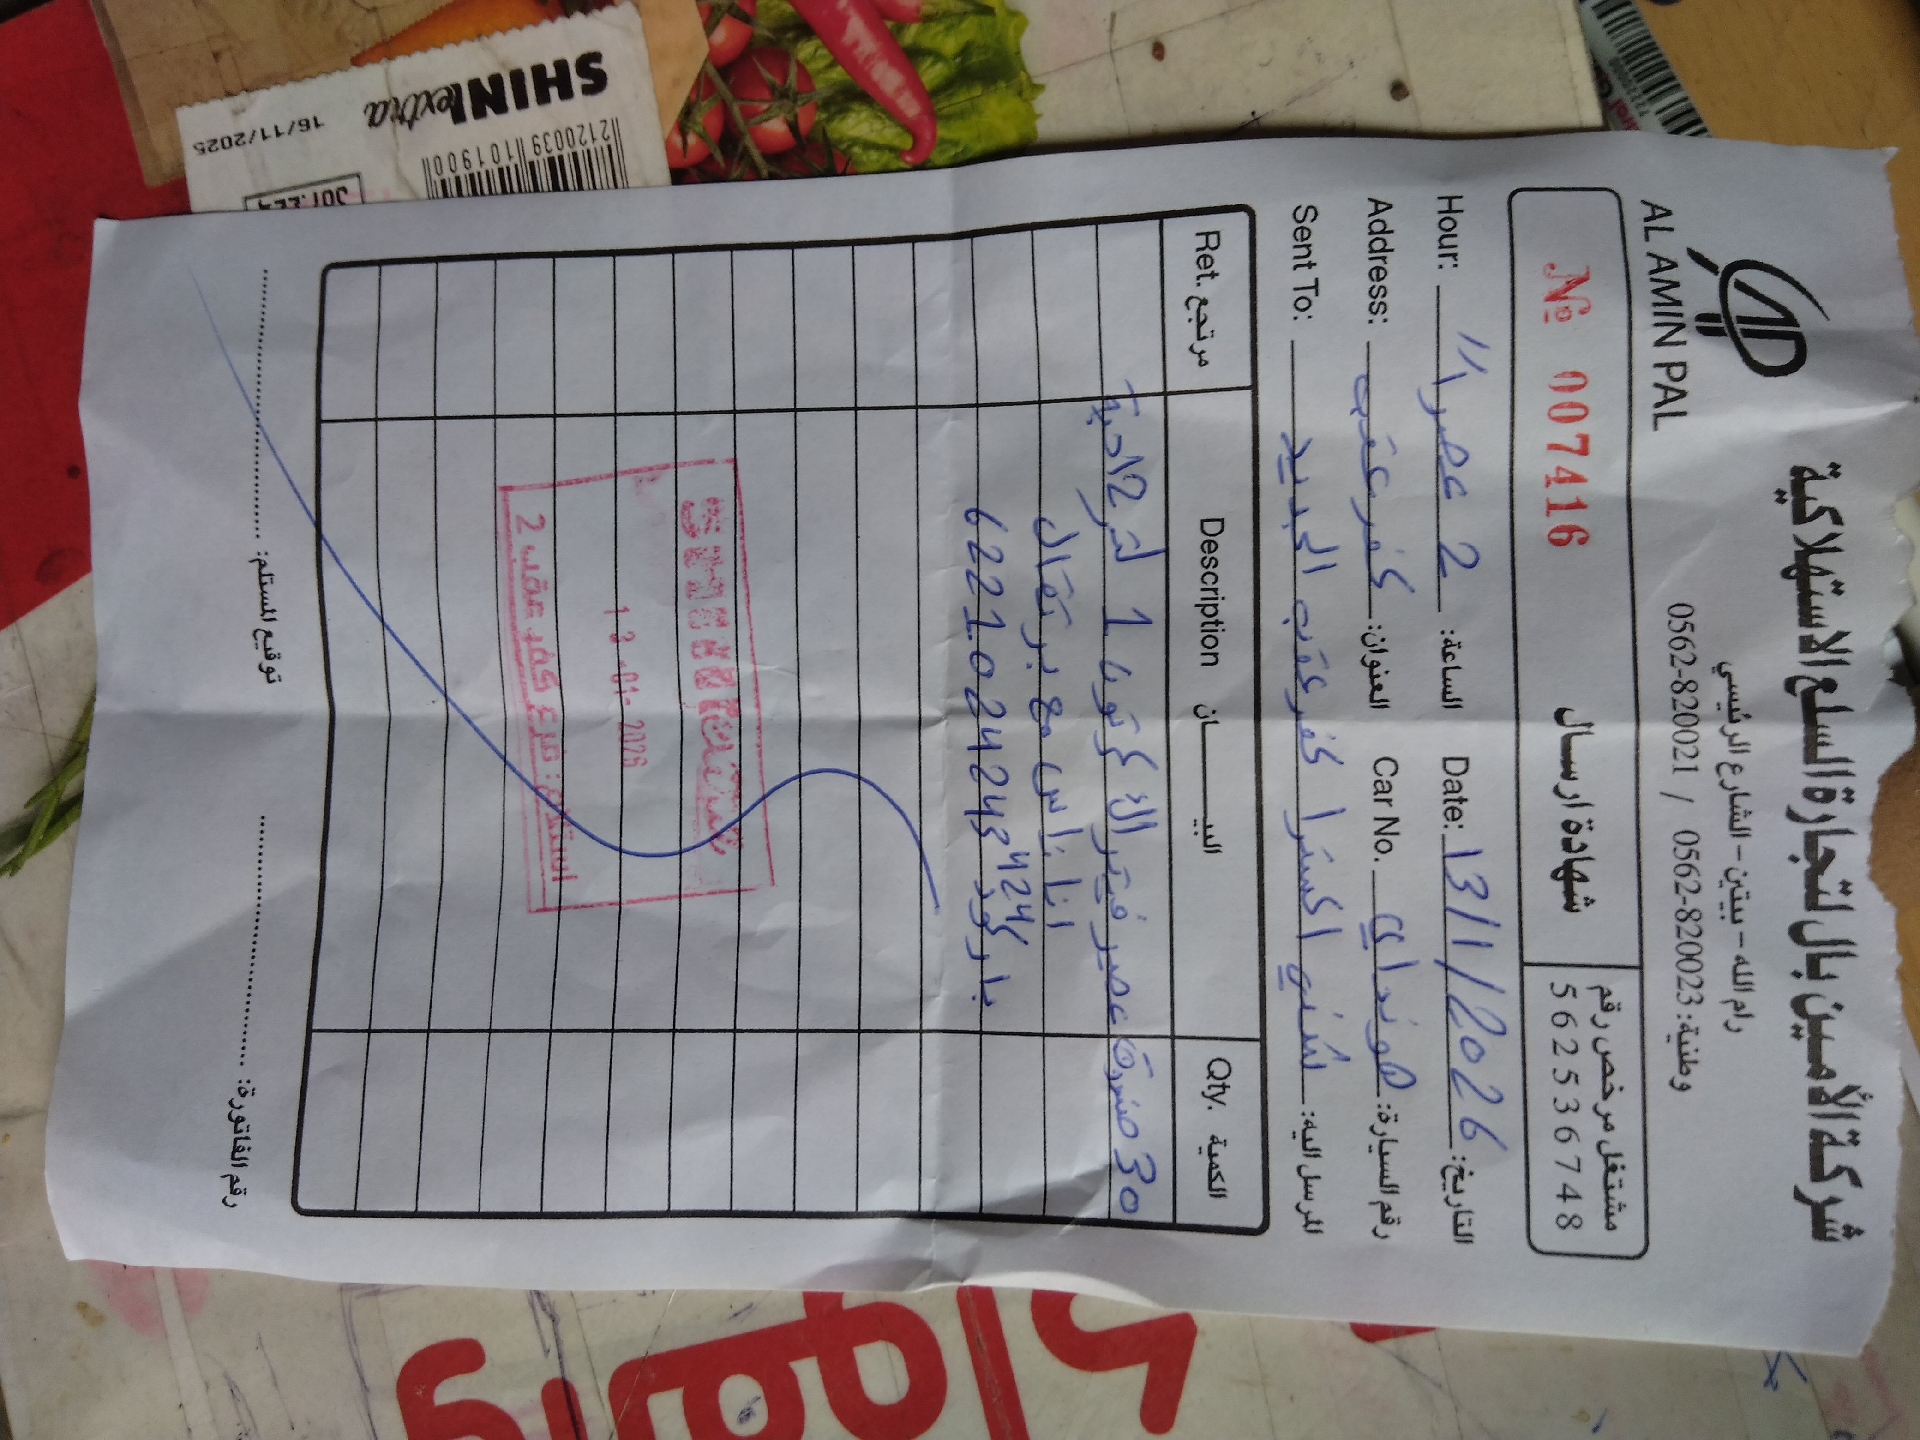 شركة الأمين بال لتجارة السلع الاستهلاكية
AL AMIN PAL
رام الله - بيتين - الشارع الرئيسي
وطنية: 0562-820023 / 0562-820021
مشتغل مرخص رقم
562536748
شهادة ارسال
№ 007416
التاريخ: 13/1/2026 Date:
الساعة: 2 عصراً Hour:
رقم السيارة: هونداي Car No.
العنوان: كفر عقب Address:
المرسل اليه: شني اكسترا كفر عقب الجديد Sent To:
الكمية Qty.
البيـــــان Description
مرتجع Ret.
30 صندوق
عصير فيتراك كرتونة 1 لتر 12 حبة
اناناس مع برتقال
باركود 6221024243
4244
13-01-2026
استلام: فرع كفر عقب 2
رقم الفاتورة:
توقيع المستلم:
SHINI extra
16/11/2025
2120039101900